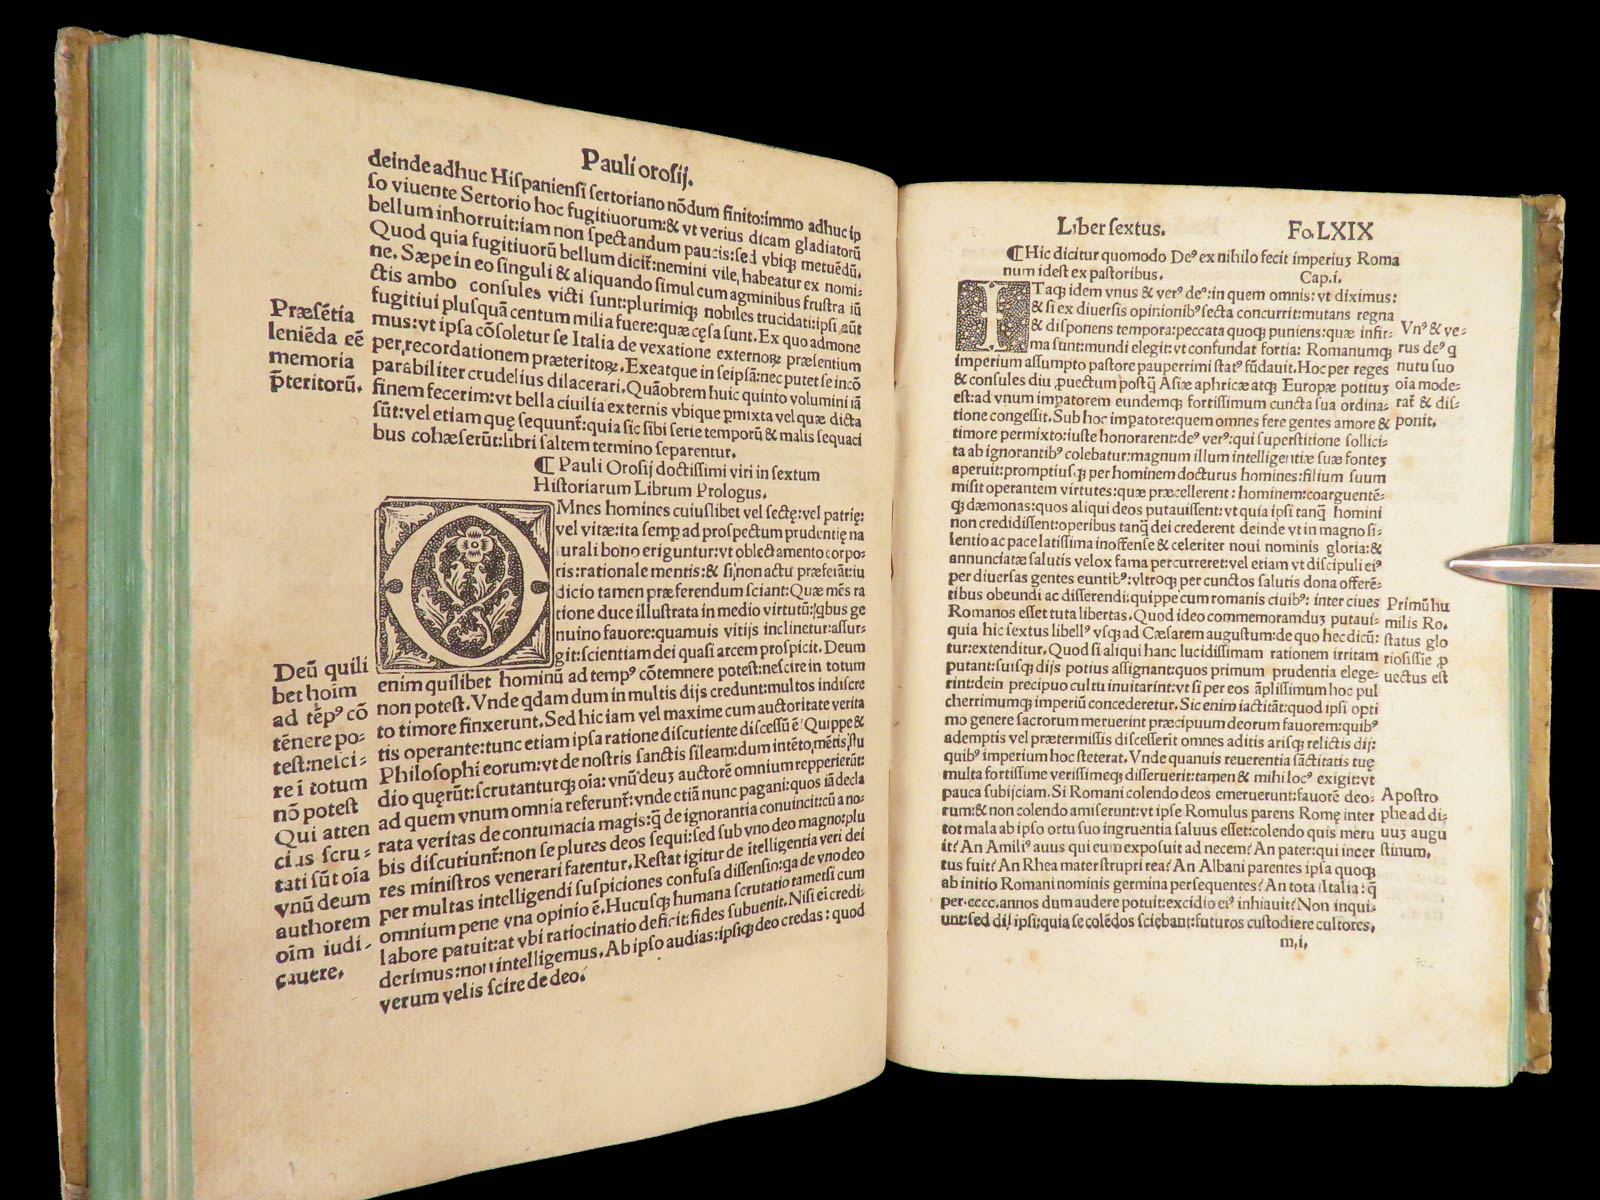 Pauli oroſij.
deinde adhuc Hiſpanienſi ſertoriano nõdum finito:immo adhuc ip
ſo viuente Sertorio hoc fugitiuorum:& vt verius dicam gladiatorũ
bellum inhorruit:iam non ſpectandum paucis:ſed vbiq; metuẽdũ.
Quod quia fugitiuorũ bellum dicit̃:nemini vile habeatur ex nomi-
ne. Sæpe in eo ſinguli & aliquando ſimul cum agminibus fruſtra iũ
ctis ambo conſules victi ſunt:plurimiq; nobiles trucidati:ipſi aũt
fugitiui pluſquã centum milia fuere:quæ cęſa ſunt. Ex quo admone
mus:vt ipſa cõſoletur ſe Italia de vexatione externoꝝ præſentium
per recordationem præteritoꝝ. Exeatque in ſeipſã:nec putet ſe incõ
parabiliter crudelius dilacerari. Quãobrem huic quinto volumini iã
finem fecerim:vt bella ciuilia externis vbique ꝑmixta vel quæ dicta
ſũt:vel etiam quę ſequunt̃:quia ſic ſibi ſerie temporũ & malis ſequaci
bus cohæſerũt:libri ſaltem termino ſeparentur.
Præſẽtia
leniẽda eẽ
memoria
p̃teritorũ.
¶ Pauli Oroſij doctiſſimi viri in ſextum
Hiſtoriarum Librum Prologus.
OMnes homines cuiuſlibet vel ſectę:vel patrię:
vel vitæ:ita ſemꝑ ad proſpectum prudentię na
urali bono eriguntur:vt oblectamento corpo-
ris:rationale mentis:& ſi non actu præferãt:iu
dicio tamen præferendum ſciant: Quæ mẽs ra
tione duce illuſtrata in medio virtutũ:qbus ge
nuino fauore:quamuis vitijs inclinetur:aſſur-
git:ſcientiam dei quaſi arcem proſpicit. Deum
enim quilibet hominũ ad tempꝰ cõtemnere poteſt:neſcire in totum
non poteſt. Vnde qdam dum in multis dijs credunt:multos indiſcre
to timore finxerunt. Sed hic iam vel maxime cum auctoritate verita
tis operante:tunc etiam ipſa ratione diſcutiente diſceſſũ ẽ: Quippe &
Philoſophi eorum:vt de noſtris ſanctis ſileam:dum intẽto mẽtis ſtu
dio quęrũt:ſcrutanturq; oĩa: vnũ deuꝫ auctorẽ omnium repperierũt:
ad quem vnum omnia referunt̃:vnde etiã nunc pagani:quos iã decla
rata veritas de contumacia magis:q̃ de ignorantia conuincit:cũ a no-
bis diſcutiunt̃:non ſe plures deos ſequi:ſed ſub vno deo magno:plu
res miniſtros venerari fatentur. Reſtat igitur de ĩtelligentia veri dei
per multas intelligendi ſuſpiciones confuſa diſſenſio:qa de vno deo
omnium pene vna opinio ẽ. Hucuſq; humana ſcrutatio tametſi cum
labore patuit:at vbi ratiocinatio deficit:fides ſubuenit. Niſi ei credi-
derimus:non intelligemus. Ab ipſo audias:ipſiq; deo credas: quod
verum velis ſcire de deo.
Deũ quili
bet hoim
ad tẽpꝰ cõ
tẽnere po-
teſt:neſci-
re ĩ totum
nõ poteſt
Qui atten
cius ſcru-
tati ſũt oĩa
vnũ deum
authorem
oĩm iudi-
cauere.
Liber ſextus. Fo. LXIX
¶ Hic dicitur quomodo Deꝰ ex nihilo fecit imperiuꝫ Roma
num ideſt ex paſtoribus. Cap.i.
ITaq; idem vnus & verꝰ deꝰ:in quem omnis: vt diximus:
& ſi ex diuerſis opinionibꝰ ſecta concurrit:mutans regna
& diſponens tempora:peccata quoq; puniens:quæ infir-
ma ſunt:mundi elegit:vt confundat fortia: Romanumq;
imperium aſſumpto paſtore pauperrimi ſtatꝰ fũdauit. Hoc per reges
& conſules diu ꝓuectum poſtq̃ Aſiæ aphricæ atq; Europæ potituꝫ
eſt:ad vnum imꝑatorem eundemq; fortiſſimum cuncta ſua ordina-
tione congeſſit. Sub hoc imꝑatore:quem omnes fere gentes amore &
timore permixto:iuſte honorarent:deꝰ verꝰ:qui ſuperſtitione ſollici-
ta ab ignorantibꝰ colebatur:magnum illum intelligentiæ ſuæ fonteꝫ
aperuit:promptiuſq; per hominem docturus homines:filium ſuum
miſit operantem virtutes:quæ præcellerent: hominem:coarguentẽ-
q; dæmonas:quos aliqui deos putauiſſent:vt quia ipſi tanq̃ homini
non credidiſſent:operibus tanq̃ dei crederent deinde vt in magno ſi-
lentio ac pace latiſſima inoffenſe & celeriter noui nominis gloria:&
annunciatæ ſalutis velox fama percurreret:vel etiam vt diſcipuli eiꝰ
per diuerſas gentes euntibꝰ:vltroq; per cunctos ſalutis dona offerẽ-
tibus obeundi ac diſſerendi:quippe cum romanis ciuibꝰ: inter ciues
Romanos eſſet tuta libertas. Quod ideo commemoranduꝫ putaui-
quia hic ſextus libellꝰ vſq; ad Cæſarem auguſtum:de quo hec dicũ:
tur:extenditur. Quod ſi aliqui hanc lucidiſſimam rationem irritam
putant:ſuiſq; dijs potius aſſignant:quos primum prudentia elege-
rint:dein precipuo cultu inuitarint:vt ſi per eos ãpliſſimum hoc pul
cherrimumq; imperiũ concederetur. Sic enim iactitãt:quod ipſi opti
mo genere ſacrorum meruerint præcipuum deorum fauorem:quibꝰ
ademptis vel prætermiſſis diſceſſerit omnes aditis ariſq; relictis dij:
quibꝰ imperium hoc ſteterat. Vnde quanuis reuerentia ſãctitatis tuę
multa fortiſſime veriſſimeq; diſſeruerit:tamen & mihi locꝰ exigit:vt
pauca ſubijciam. Si Romani colendo deos emeruerunt:fauorẽ deo-
rum:& non colendo amiſerunt:vt ipſe Romulus parens Romę inter
tot mala ab ipſo ortu ſuo ingruentia ſaluus eſſet:colendo quis meru
it? An Amiliꝰ auus qui eum expoſuit ad necem? An pater:qui incer
tus fuit? An Rhea mater ſtrupri rea? An Albani parentes ipſa quoq;
ab initio Romani nominis germina perſequentes? An tota Italia: q̃
per.cccc.annos dum audere potuit:excidio eiꝰ inhiauit? Non inqui-
unt:ſed dij ipſi:quia ſe colẽdos ſciebant:futuros cuſtodiere cultores.
m.i.
Vnꝰ & ve-
rus deꝰ q
nutu ſuo
oĩa mode-
rat̃ & diſ-
ponit.
Primũ hu
milis Ro.
ſtatus glo
rioſiſſie ꝓ
uectus eſt
Apoſtro
phe ad di-
uuꝫ augu
ſtinum.